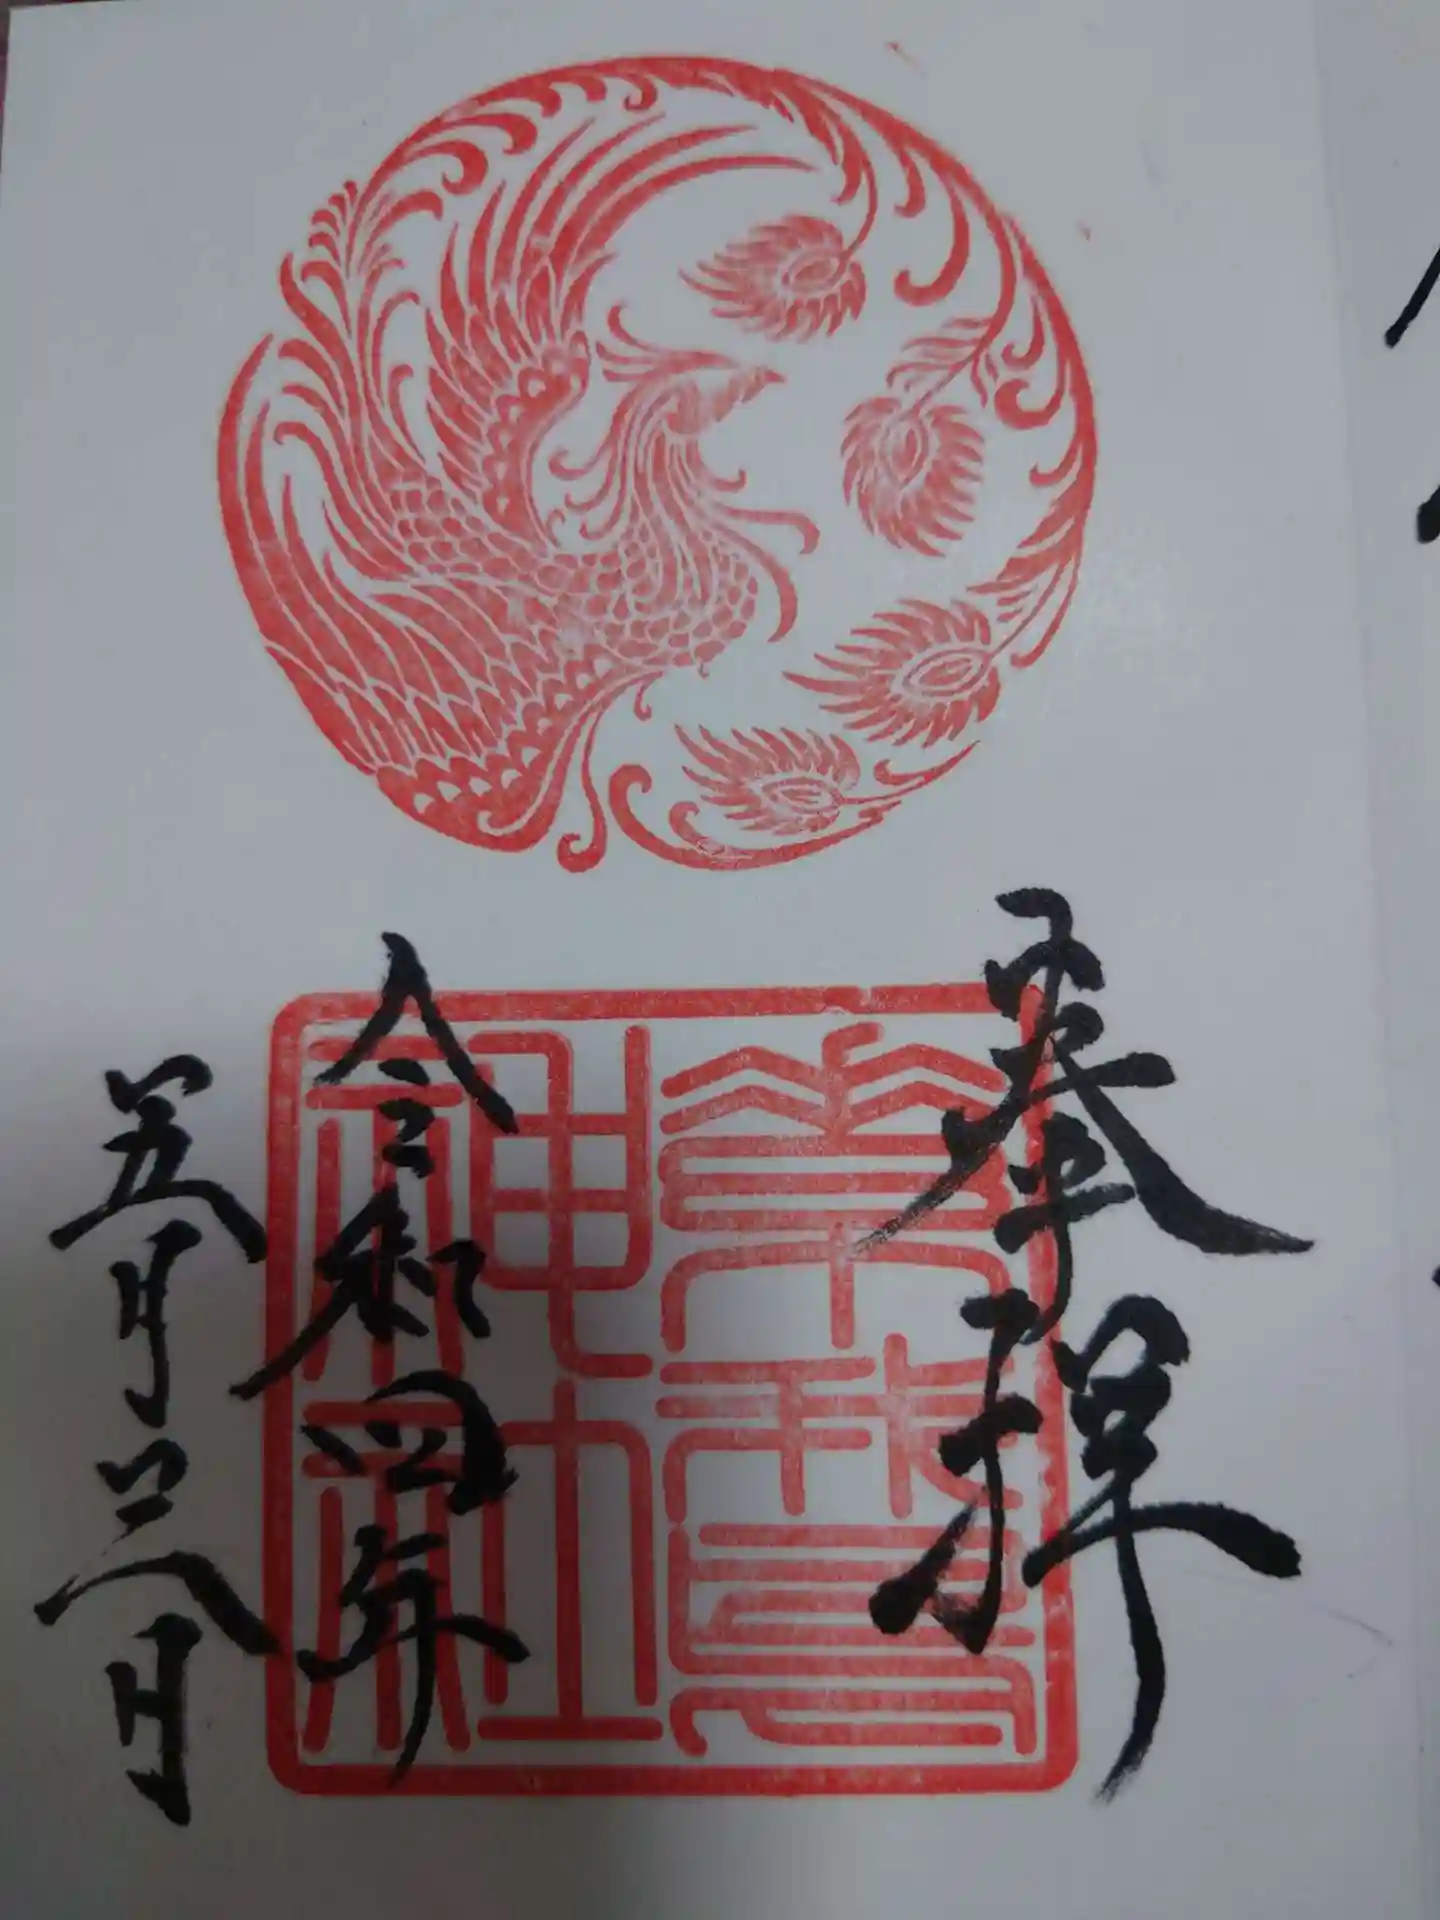 奉拝
素鵞
神社
令和四年
五月二八日